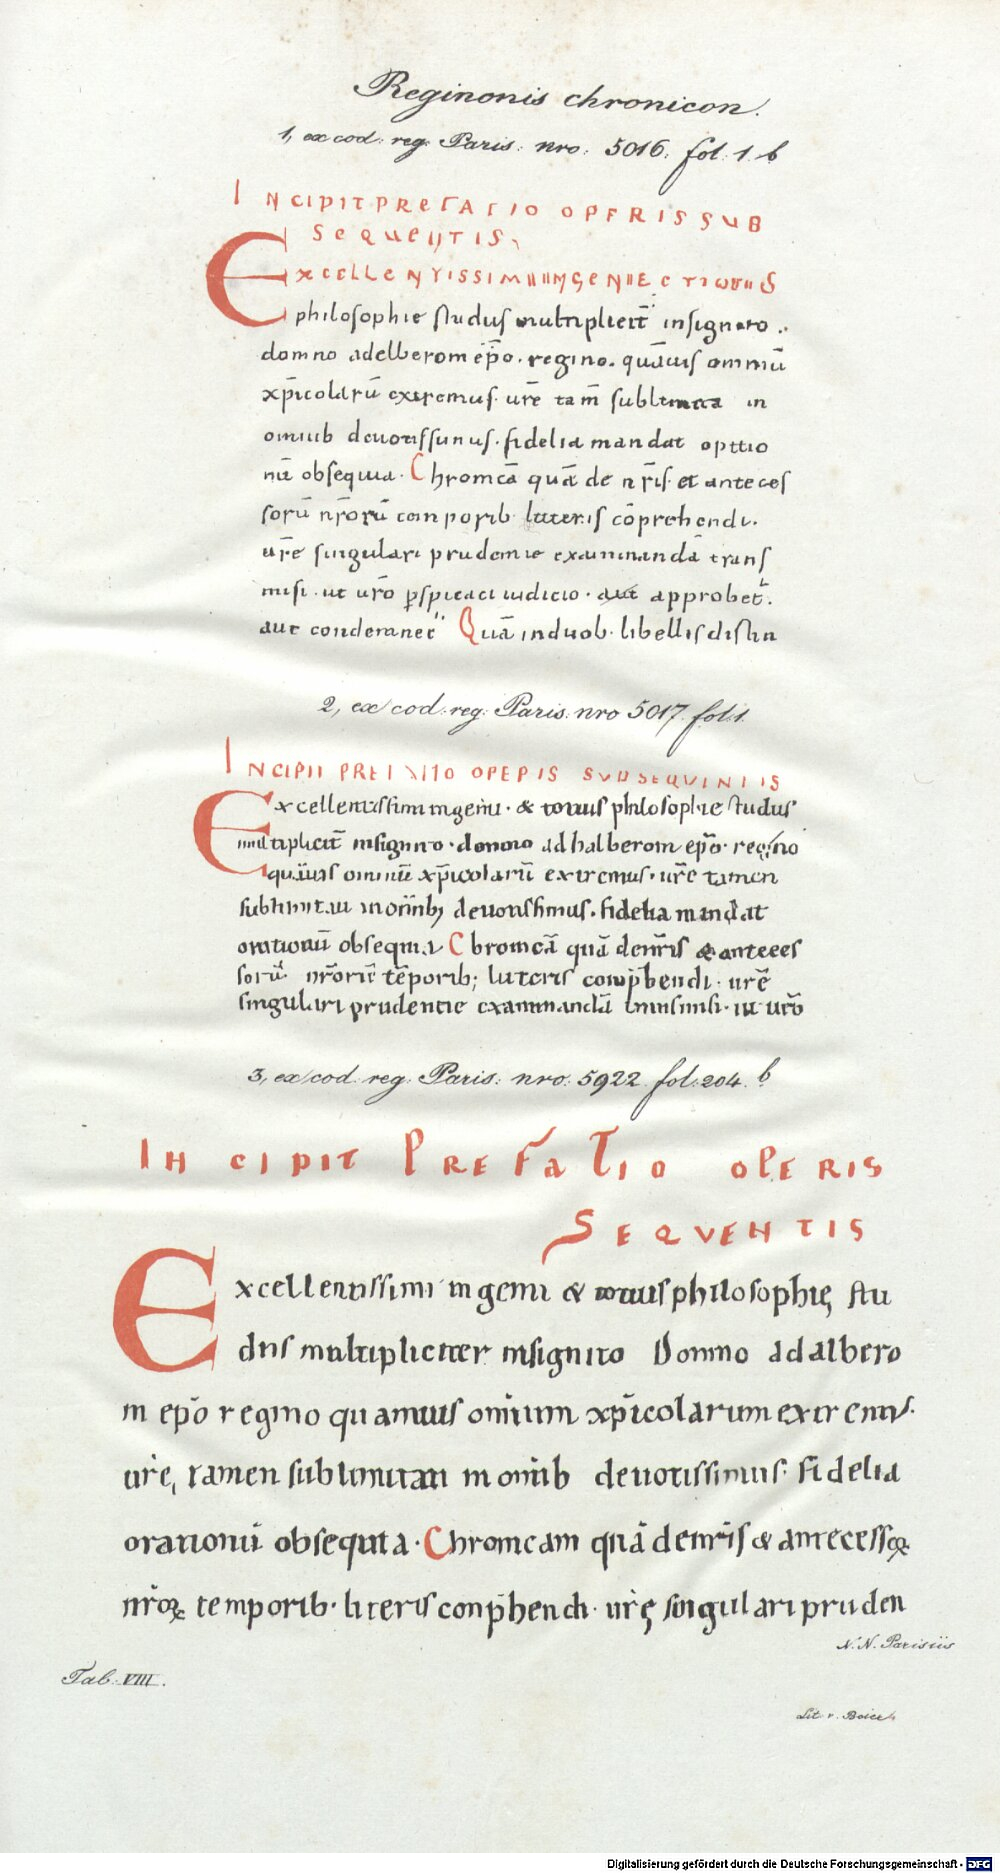 Reginonis chronicon.
1, ex cod. reg. Paris. nro. 5016. fol. 1. b
INCIPIT PREFATIO OPERIS SUB
SEQUENTIS,
EXCELLENTISSIMI INGENII ET TOTIUS
philosophie studiis multiplicit̄ insignito.
domno adelberom ēp̄o. regino. quāuis omniū
xp̄icolarū extremus. ur̄e tam̄ sublimita in
omnib deuotissimus. fidelia mandat optio
nū obsequia. Chronicā quā de nr̄is. et anteces
sorū nr̄orū temporib litteris cōprehendi.
ur̄e singulari prudentie examinandā trans
misi. ut ur̄o ꝑspicaci iudicio. aut approbet̄.
aut condemnet Quā in duob. libellis distin
2, ex cod. reg. Paris. nro 5017. fol. 1.
INCIPIT PREFATIO OPERIS SUBSEQUENTIS
Excellentissimi ingenii. & totius philosophie studiis
multiplicit̄ insignito. domno adhalberom ep̄o. regino
quāuis omniū xp̄icolarū extremus. ur̄e tamen
sublimitati in om̄ib; deuotissimus. fidelia mandat
orationū obsequia Chronicā quā de nr̄is & anteces
sorū nr̄orū tēporib; litteris comp̄hendi. ur̄e
singulari prudentie examinandā transmisi. ut ur̄o
3, ex cod. reg. Paris. nro. 5922. fol. 204. b
INCIPIT PREFATIO OPERIS
SEQVENTIS
Excellentissimi ingenii & totius philosophię stu
diis multipliciter insignito Domno adalbero
m ep̄o regino quamuis omnium xp̄icolarum extremus.
ur̄ę tamen sublimitati in omīb deuotissimus. fidelia
orationū obsequia. Chronicam quā de nr̄is & antecessoꝝ
nr̄oꝝ temporib. literis conp̄hendi. ur̄ę singulari pruden
N. N. Parisiis
Tab. VIII.
Lit. v.
Digitalisierung gefördert durch die Deutsche Forschungsgemeinschaft - DFG